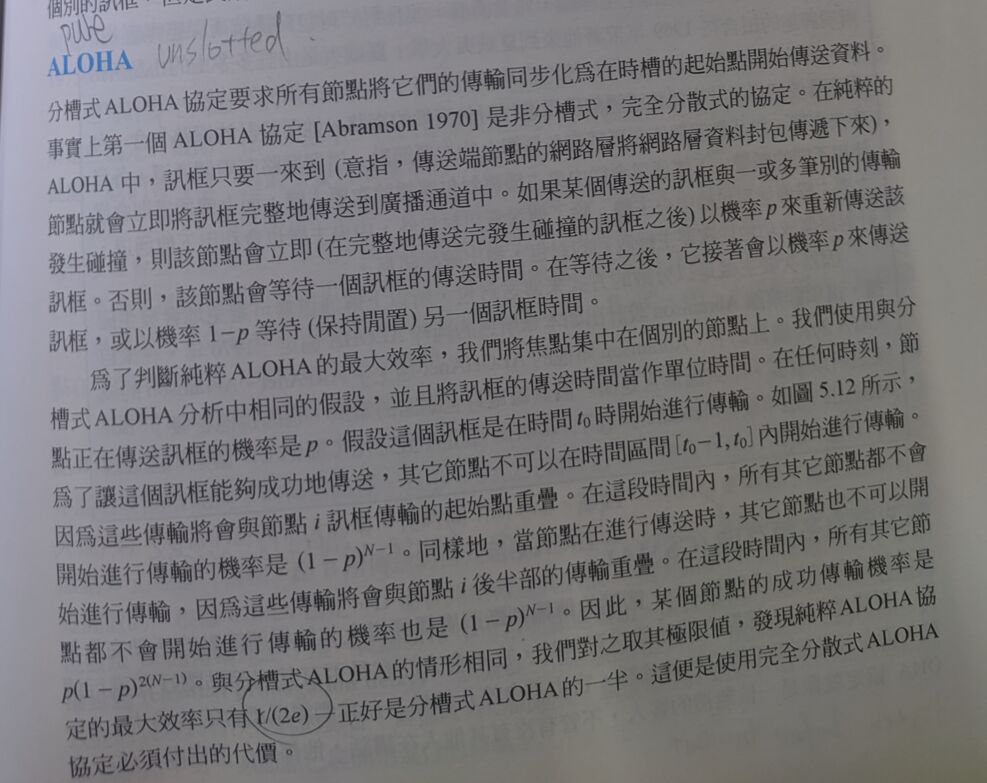 個別的訊框,但是
pure
ALOHA unslotted.
分槽式 ALOHA 協定要求所有節點將它們的傳輸同步化為在時槽的起始點開始傳送資料。
事實上第一個 ALOHA 協定 [Abramson 1970] 是非分槽式,完全分散式的協定。在純粹的
ALOHA 中,訊框只要一來到 (意指,傳送端節點的網路層將網路層資料封包傳遞下來),
節點就會立即將訊框完整地傳送到廣播通道中。如果某個傳送的訊框與一或多筆別的傳輸
發生碰撞,則該節點會立即 (在完整地傳送完發生碰撞的訊框之後) 以機率 p 來重新傳送該
訊框。否則,該節點會等待一個訊框的傳送時間。在等待之後,它接著會以機率 p 來傳送
訊框,或以機率 1−p 等待 (保持閒置) 另一個訊框時間。
為了判斷純粹 ALOHA 的最大效率,我們將焦點集中在個別的節點上。我們使用與分
槽式 ALOHA 分析中相同的假設,並且將訊框的傳送時間當作單位時間。在任何時刻,節
點正在傳送訊框的機率是 p。假設這個訊框是在時間 t₀ 時開始進行傳輸。如圖 5.12 所示,
為了讓這個訊框能夠成功地傳送,其它節點不可以在時間區間 [t₀−1, t₀] 內開始進行傳輸。
因為這些傳輸將會與節點 i 訊框傳輸的起始點重疊。在這段時間內,所有其它節點都不會
開始進行傳輸的機率是 (1−p)ᴺ⁻¹。同樣地,當節點在進行傳送時,其它節點也不可以開
始進行傳輸,因為這些傳輸將會與節點 i 後半部的傳輸重疊。在這段時間內,所有其它節
點都不會開始進行傳輸的機率也是 (1−p)ᴺ⁻¹。因此,某個節點的成功傳輸機率是
p(1−p)²⁽ᴺ⁻¹⁾。與分槽式 ALOHA 的情形相同,我們對之取其極限值,發現純粹 ALOHA 協
定的最大效率只有 1/(2e) —正好是分槽式 ALOHA 的一半。這便是使用完全分散式 ALOHA
協定必須付出的代價。